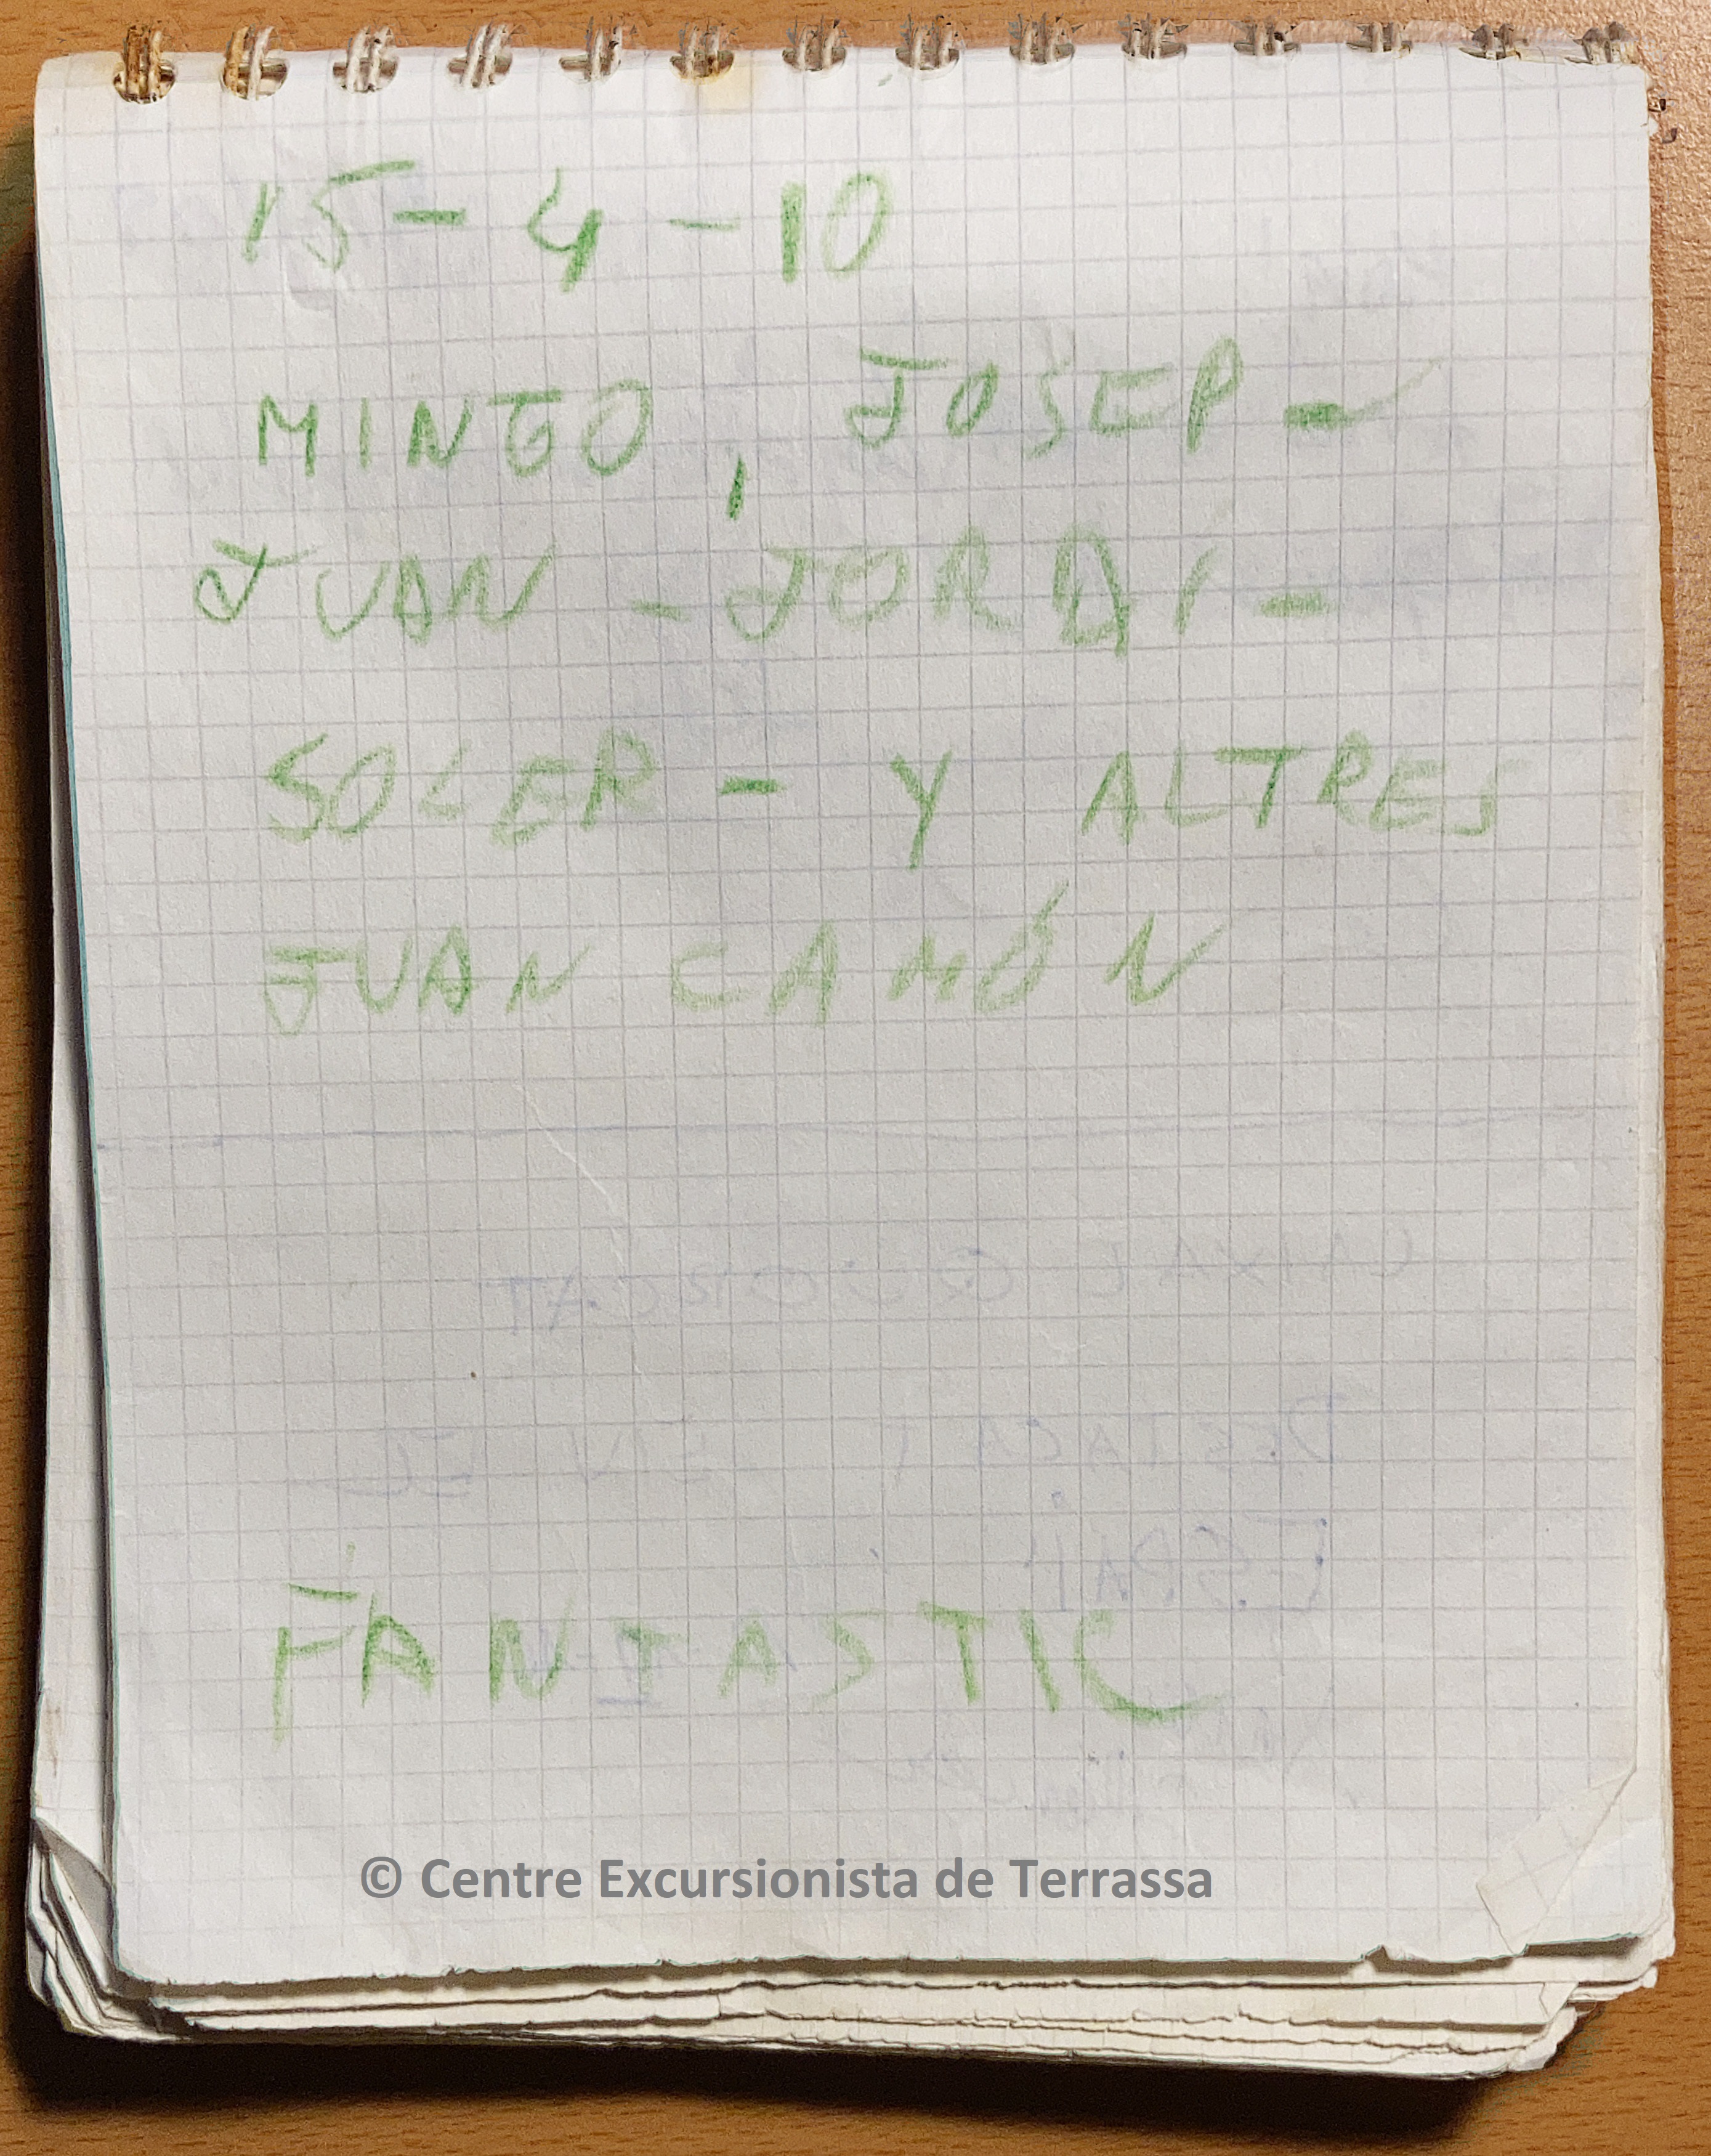 15-4-10
MINGO, JOSEP -
JUAN - JORDI -
SOLER - Y ALTRES
JUAN CAMÓN
FANTASTIC
© Centre Excursionista de Terrassa